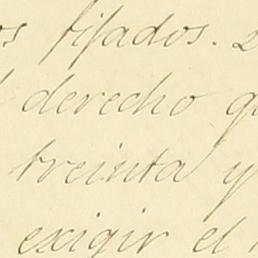 os fijados. 2
derecho qu
treinta y
exigir el